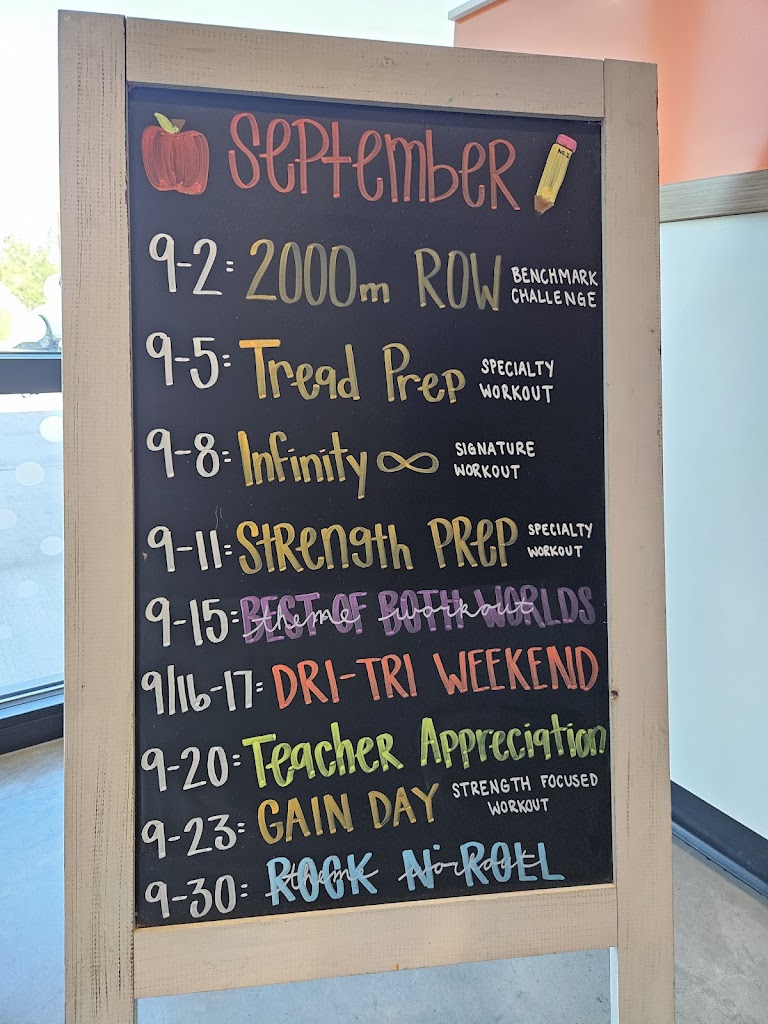 September
No. 2
9-2: 2000m ROW BENCHMARK CHALLENGE
9-5: Tread Prep SPECIALTY WORKOUT
9-8: Infinity ∞ SIGNATURE WORKOUT
9-11: Strength Prep SPECIALTY WORKOUT
9-15: BEST OF BOTH WORLDS theme workout
9/16-17: DRI-TRI WEEKEND
9-20: Teacher Appreciation
9-23: GAIN DAY STRENGTH FOCUSED WORKOUT
9-30: ROCK N' ROLL theme workout